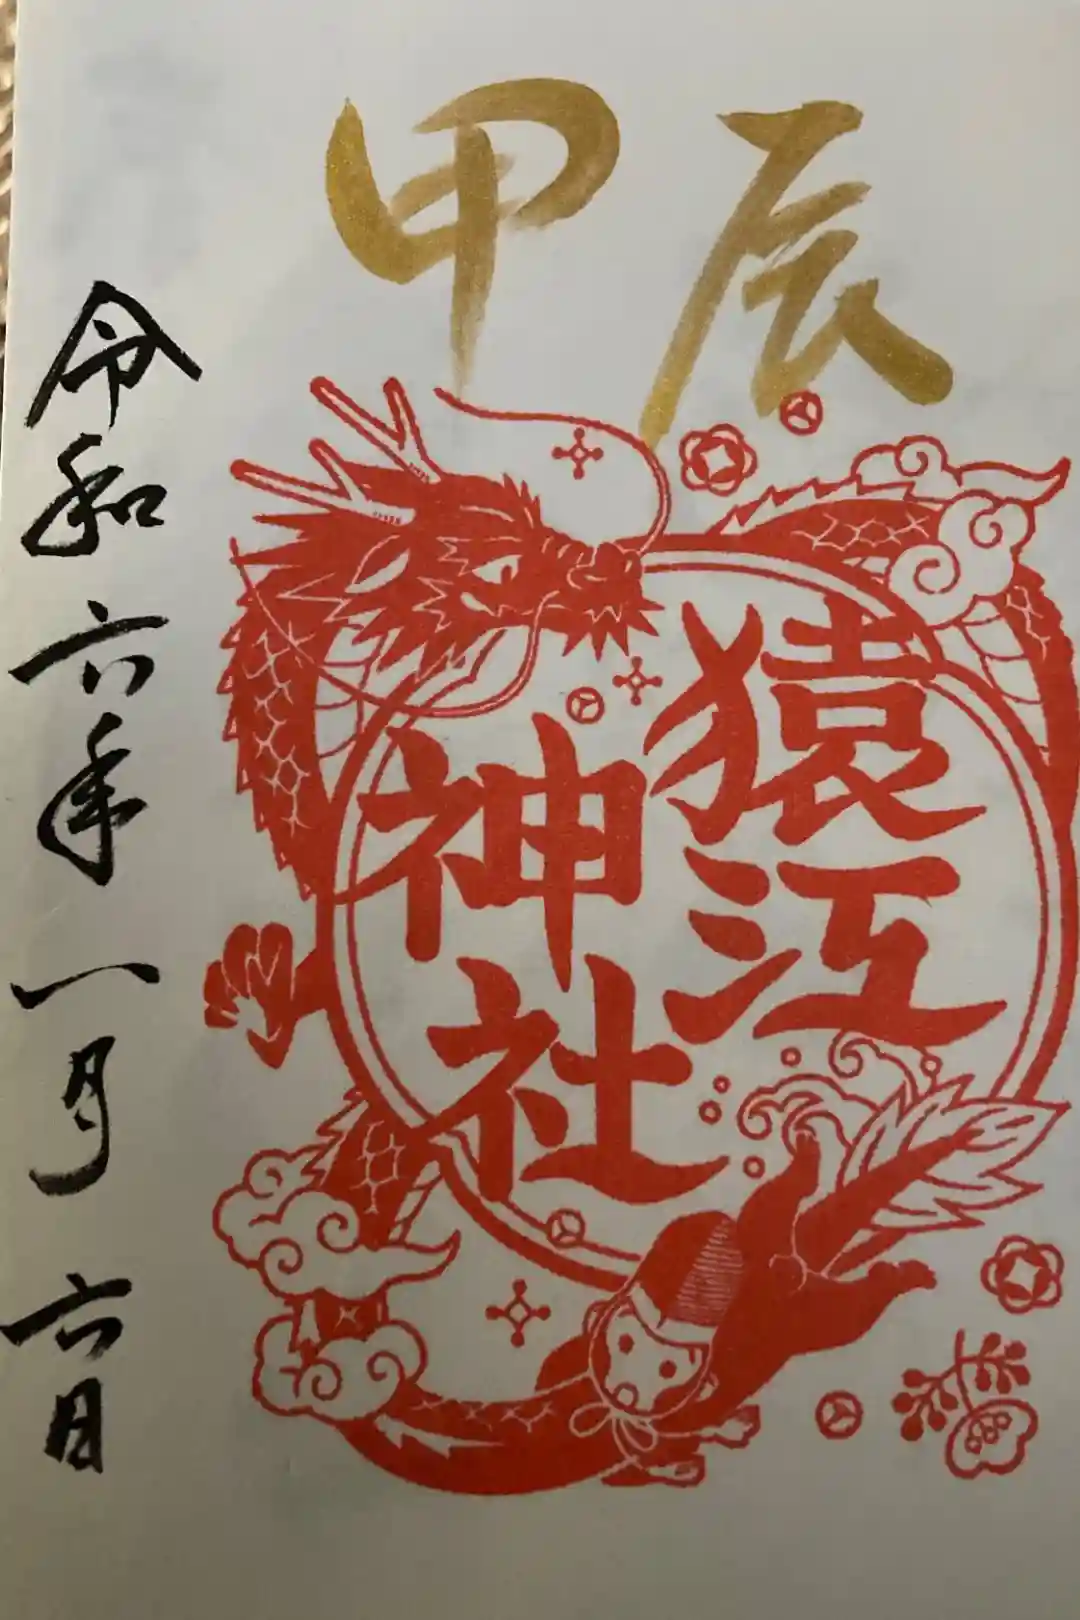 甲辰
猿江
神社
令和六年一月六日